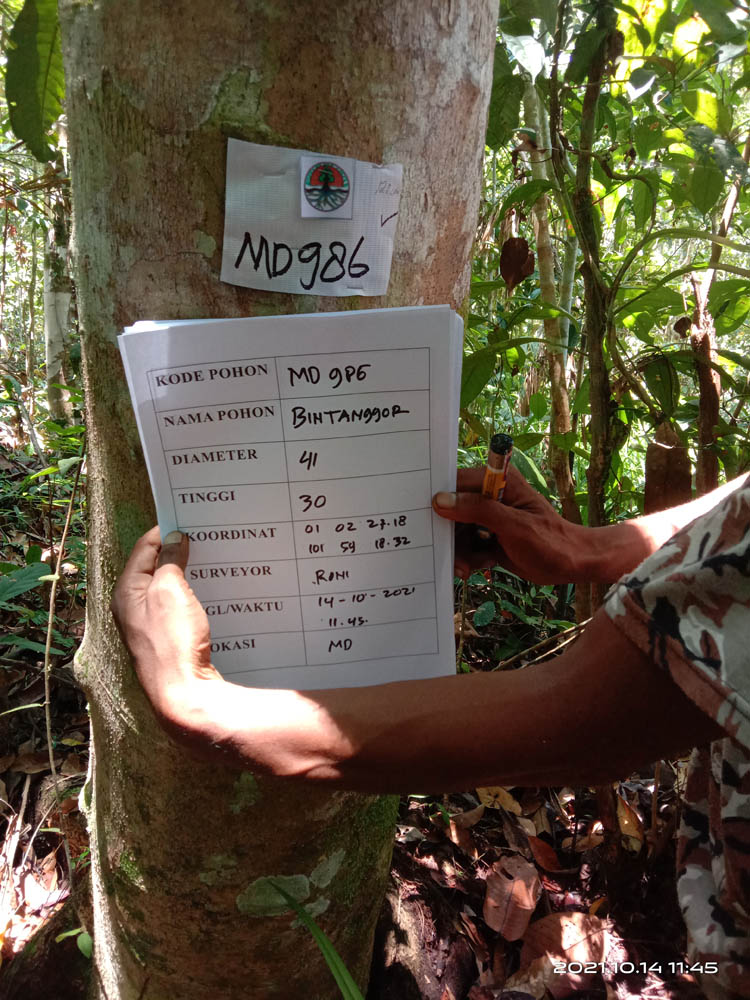 MD986
KODE POHON MD 986
NAMA POHON BINTANGGOR
DIAMETER 41
TINGGI 30
KOORDINAT 01 02 27.18
101 59 18.32
SURVEYOR RONI
GL/WAKTU 14-10-2021
11.45.
OKASI MD
2021.10.14 11:45